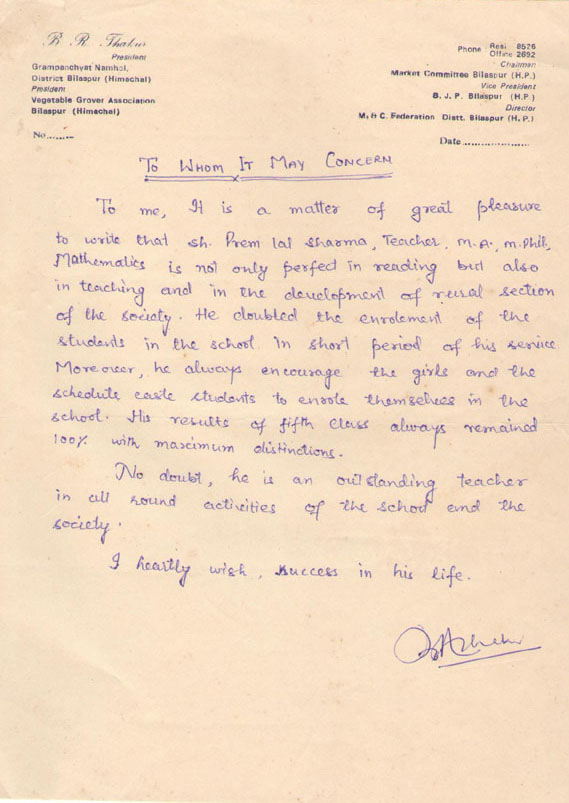 B. R. Thakur
President
Grampanchyat Namhol,
District Bilaspur (Himachal)
President
Vegetable Grover Association
Bilaspur (Himachal)
No.........
Phone : Resi 8576
Office 2692
Chairman
Market Committee Bilaspur (H.P.)
Vice President
B. J. P. Bilaspur (H.P.)
Director
M. & C. Federation Distt. Bilaspur (H.P.)
Date ..................
To Whom It May Concern
To me, It is a matter of great pleasure
to write that Sh. Prem lal Sharma, Teacher, M.A., M.Phil,
Mathematics is not only perfect in reading but also
in teaching and in the development of rural section
of the society. He doubled the enrolement of the
students in the school in short period of his service.
Moreover, he always encourage the girls and the
schedule caste students to enrole themselves in the
school. His results of fifth class always remained
100% with maximum distinctions.
No doubt, he is an outstanding teacher
in all round activities of the school and the
society.
I heartly wish, success in his life.